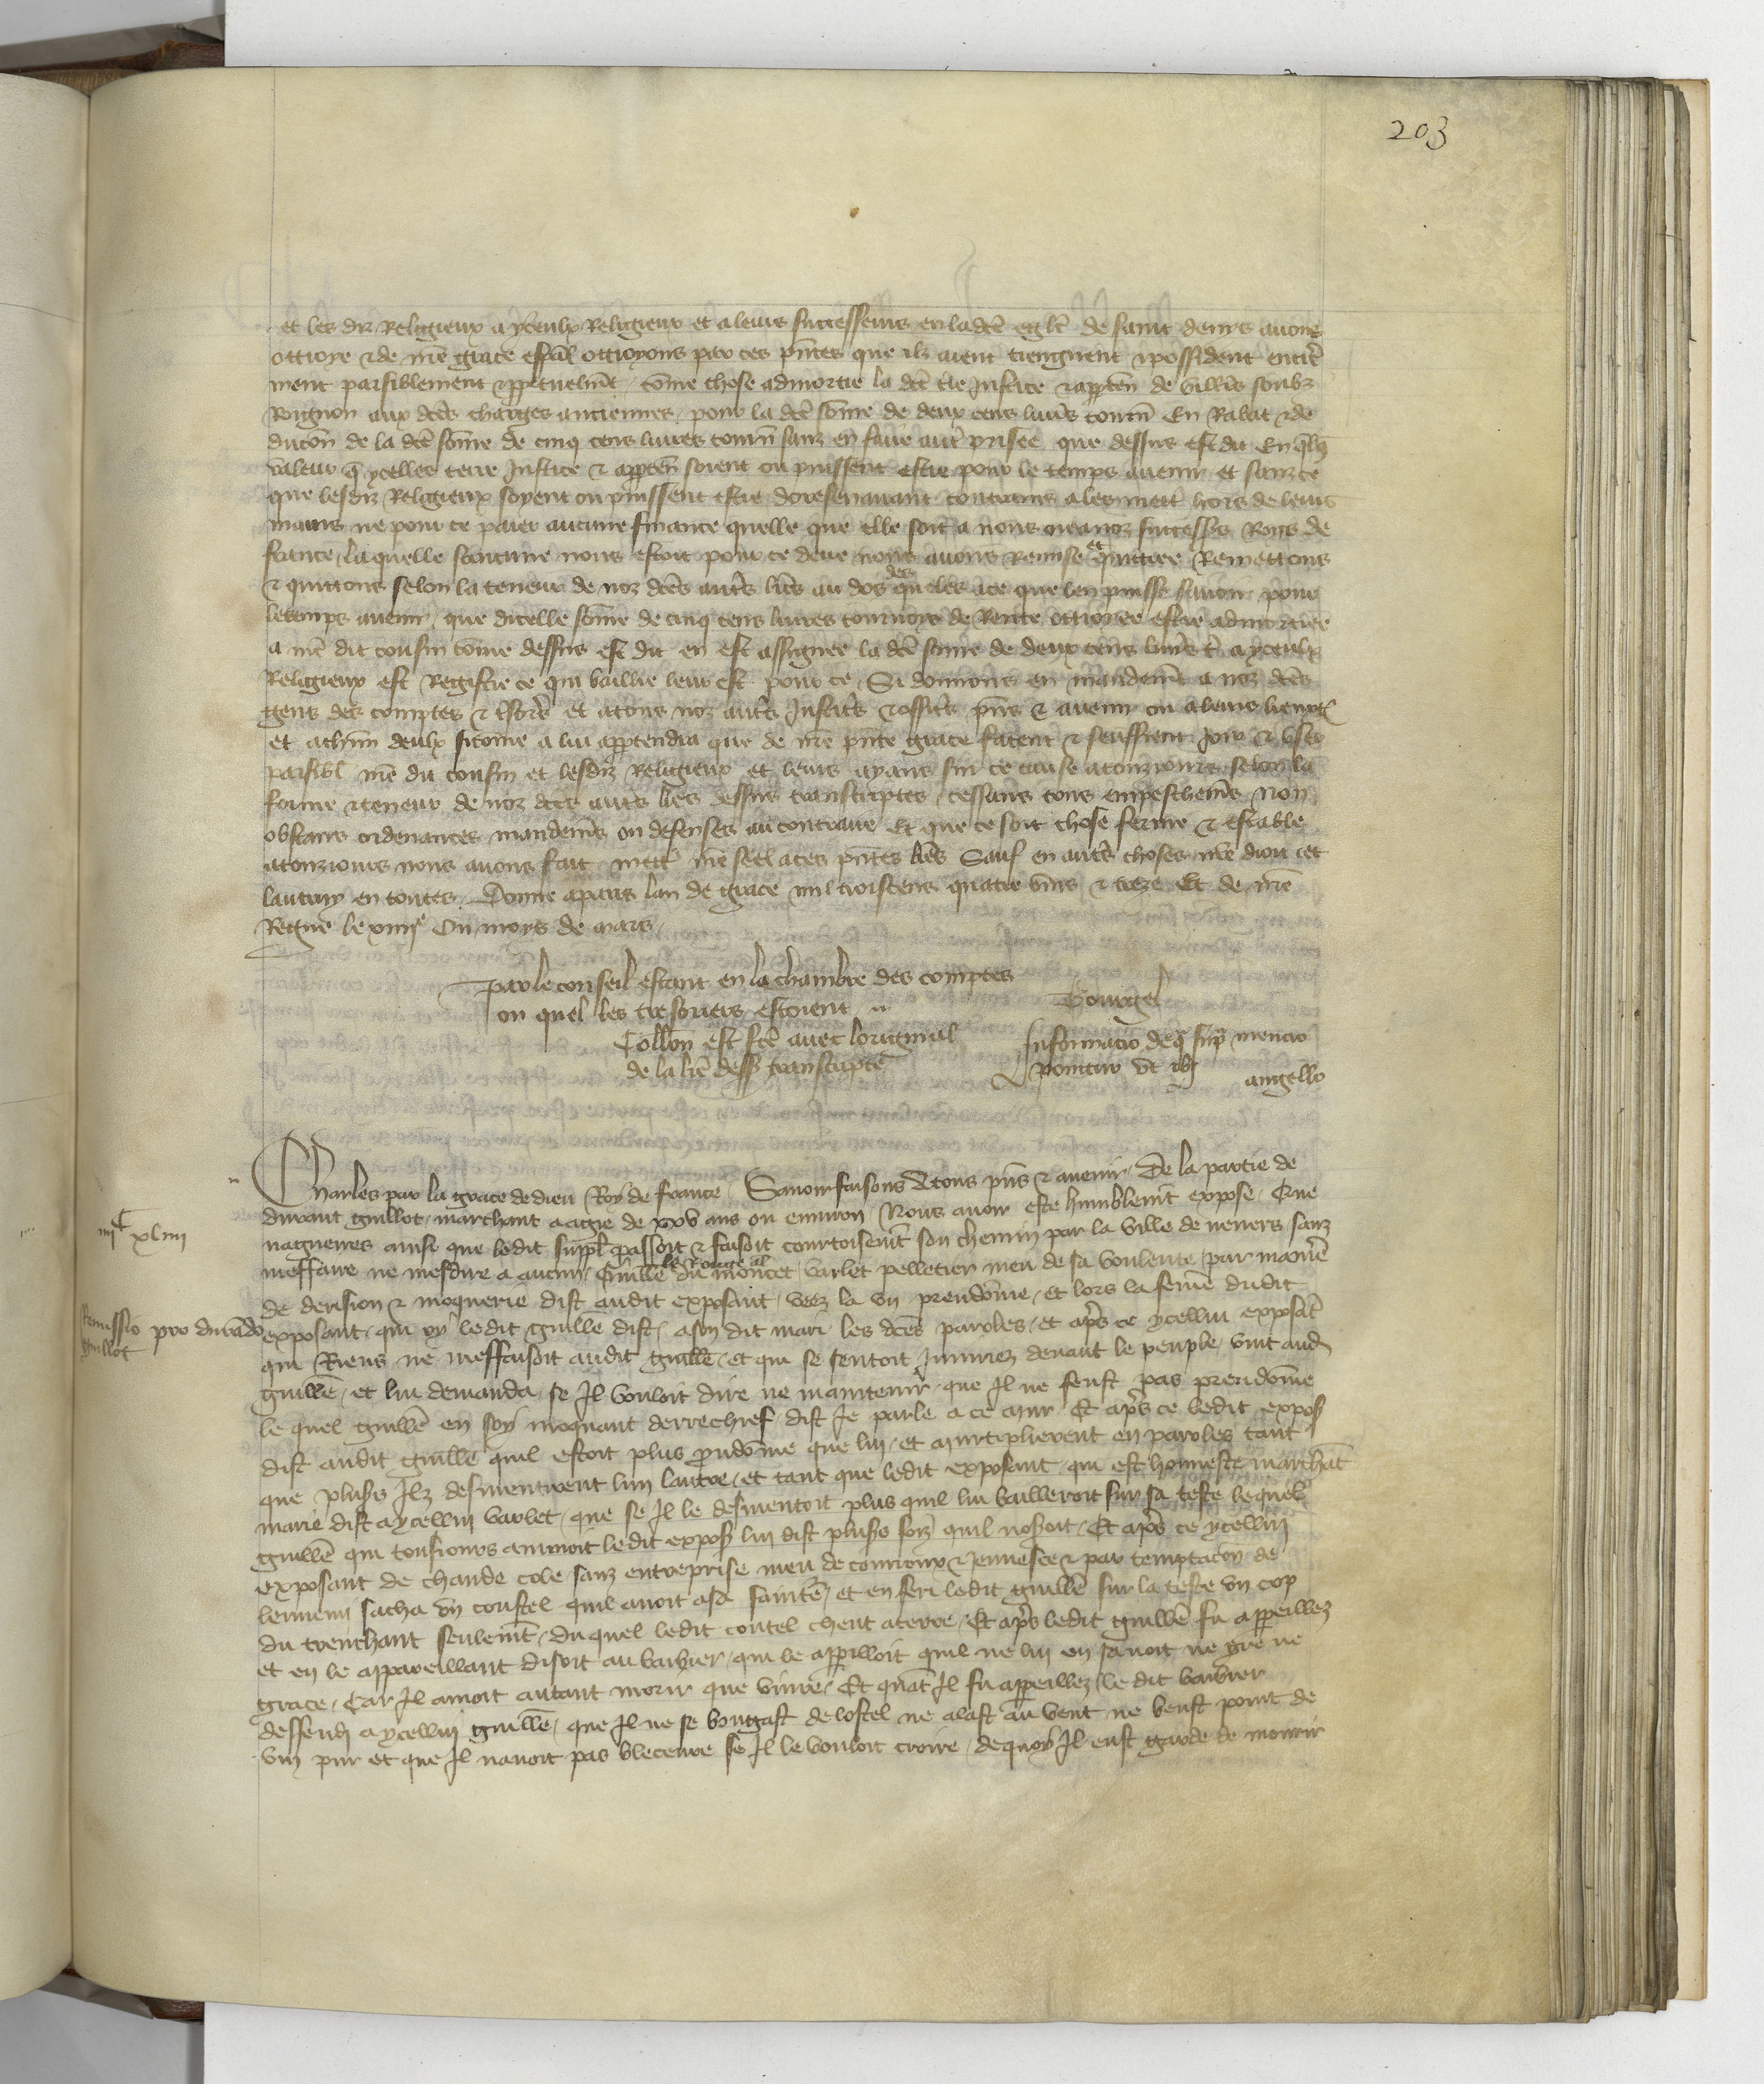 203
et les diz Religieux a yceulx Religieux et a leurs successeurs en ladcē eglē de saint denys avons
ottroye & de nrē grace espāl ottroyons par ces pn̄tes que ilz aient tiengnent & possident entie᷑
ment paisiblement & ppetuelmēt cōme chose admortie la dcē tr̄e justice & apptēn de villers soubz
Roignon aux dcēs charges anciennes pour la dcē sōme de deux cens livres tourn̄ En Rabat & de
ducōn de la dcē sōme de cinq cens livres tourn̄ sanz en faire autr̄ prisee que dessus est dit En qlq̄
valeur q̄ ycelles terre justice & apptēn soient ou puissent estre pour le temps avenir et sanz ce
que lesdiz Religieux soyent ou puissent estre doresenavant contrains a les mettr̄ hors de leurs
mains ne pour ce paier aucune finance quelle que elle soit a nous ne a noz successr̄s Roys de
france la quelle finance nous estoit pour ce deue nous avons Remise et quittee Remettons
& quittons selon la teneur de noz dcēs autr̄s lr̄es au dos des queles a ce que len puisse savoir pour
le temps avenir que dicelle sōme de cinq cens livres tournoys de Rente ottroyee estre admortie
a nrē dit cousin cōme dessus est dit en est assignee la dcē sōme de deux cens livr̄s t̄ a yceulx
Religieux est Registre ce qui baillie leur est pour ce Si donnons en mandemēt a noz dcēs
gens des comptes & tresorr̄s et a tous noz autr̄s justic̄rs & offic̄rs pn̄s & avenir ou a leurs lieuxt̄
et a chūn deulx si cōme a lui appartendra que de nrē pn̄te grace facent & seuffrent joir & user
paisibl nrē dit cousin et lesdiz Religieux et leurs ayans sur ce cause a touzjours selon la
forme & teneur de noz dcēs autr̄s lr̄es dessus transcriptes cessans tous empeschemēs Non
obstans ordenances mandemēs ou defenses au contraire Et que ce soit chose ferme & estable
a touzjours nous avons fait mettr̄ nrē seel a ces pn̄tes lr̄es Sauf en autr̄s choses nrē droit et
lautruy en toutes Donne a paris lan de grace mil trois cens quatre vins & treze Et de nrē
Regne le xiiiiᵉ Ou moys de mars
par le conseil estant en la chambre des comptes
ou quel les tresoriers estoient
Gourgel
Collōn est fcē avec loriginal
de la lr̄e dess̄ transcripte
Informacio de q̄ supra mencio
ponitur ut ibi
angello
Charles par la grace de dieu Roy de france Savoir faisons a tous pn̄s & avenir De la partie de
durant guillot marchant aagie de xxv ans ou environ Nous avoir este humblemēt expose Que
nagueres ainsi que ledit suppl̄ passoit & faisoit courtoisemēt son chemin par la ville de nevers sanz
iiijᶜ xliiij
meffaire ne mesdire a aucun Guillē le Rouge al du moncet varlet pelletier meu de sa voulente par manier̄e
de derision & moquerie dist audit exposant veez la un preudōme et lors la femē dudit
Remissio pro durādo guillot
exposant qui oy ledit guillē dist a son dit mari les dcēs paroles et apr̄s ce ycellui exposāt
qui Riens ne meffaisoit audit guillē et qui se sentoit injuriez devant le peuple vint aud̄
guillē et lui demanda se Il vouloit dire ne maintenir que Il ne feust pas preudōme
le quel guillē en soy moquant derrechief dist Je parle a ce mur Et apr̄s ce ledit expos̄
dist audit guillē quil estoit plus prudōme que lui et murtiplierent en paroles tant
que plusrs̄ Ilz desmentirent lun lautre et tant que ledit exposant qui est honneste marchāt
marie dist a ycellui varlet que se Il le desmentoit plus quil lui bailleroit sur sa teste lequel
guillē qui tousjours animoit ledit expos̄ lui dist plusrs̄ foiz quil nosoit Et apr̄s ce ycellui
exposant de chaude cole sanz entreprise meu de courroux & jennesce & par temptacōn de
lennemi sacha un coustel quil avoit a sa sainturē et en feri ledit guillē sur la teste un cop
du trenchant seulemēt duquel ledit coutel cheut a terre Et apr̄s ledit guillē fu appeillez
et en le appareillant disoit au barbier qui le appeilloit quil ne lui en savoit ne gre ne
grace Car Il amoit autant morir que vivre Et quāt Il fu appeillez le dit barbier
deffendi a ycellui guillē que Il ne se bougast de lostel ne alast au vent ne beust point de
vin pur et que Il navoit pas blecēure se Il le vouloit croire dequoy Il eust garde de mourir